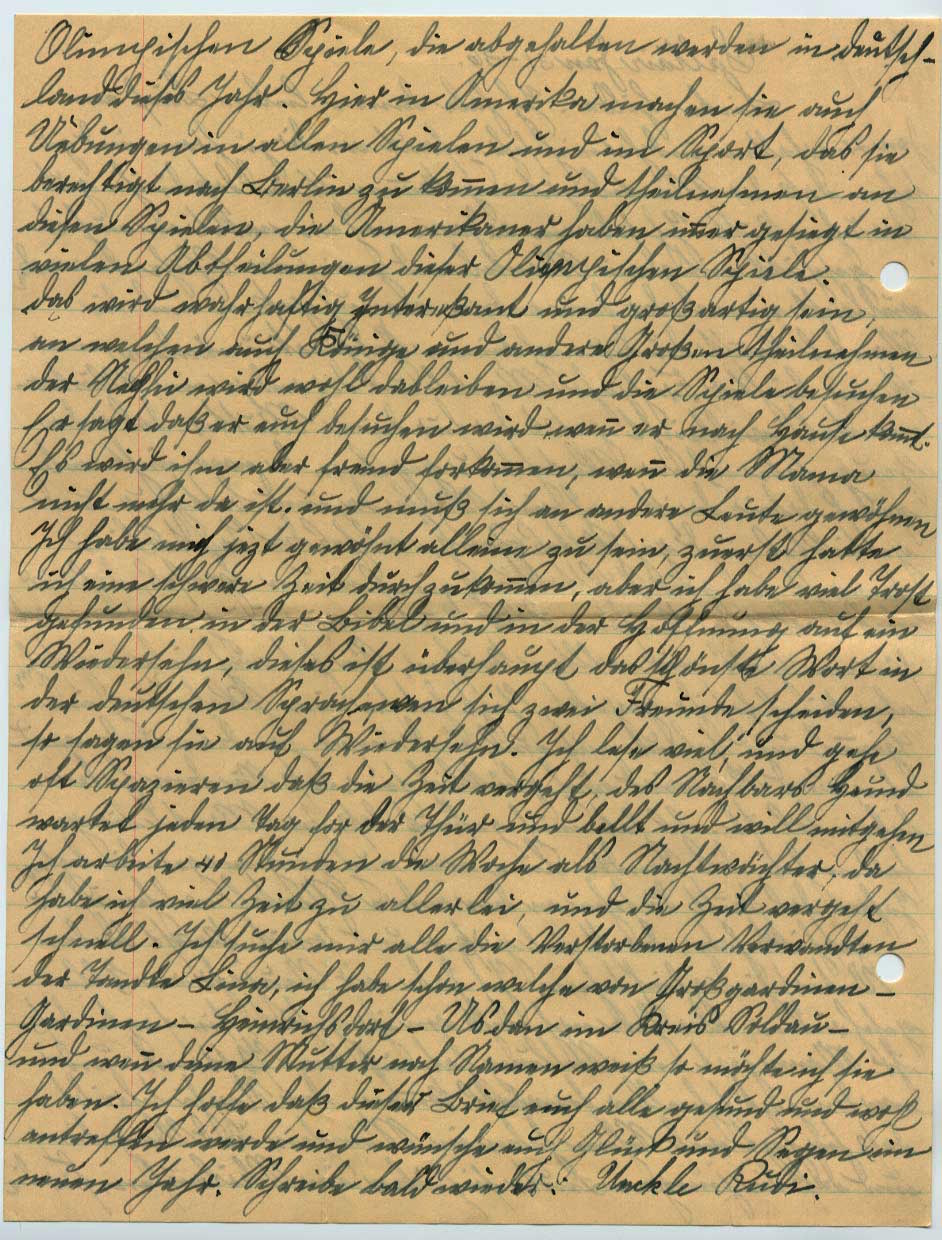 Olimpischen Spiele, die abgehalten werden in deutsch-
land dieses Jahr. Hier in Amerika machen sie auch
Uebungen in allen Spielen und im Sport, das sie
berechtigt nach Berlin zu kom̅en und theilnehmen an
diesen Spielen, die Amerikaner haben im̅er gesiegt in
vielen Abtheilungen dieser Olimpischen Spiele.
das wird wahrhaftig Interessant und großartig sein,
an welchen auch Könige und andere Großen theilnehmen
der wird wohl dableiben und die Spiele besuchen
Er sagt daß er euch besuchen wird, wen̅ er nach Hause kom̅t.
Es wird ihm aber fremd forkom̅en, wen̅ die Mama
nicht mehr da ist. und muß sich an andere Leute gewöhnen
Ich habe mich jezt gewöhnt alleine zu sein, zuerst hatte
ich eine schwere Zeit durchzukom̅en, aber ich habe viel Trost
gefunden in der Bibel und in der Hoffnung auf ein
Wiedersehn, dieses ist überhaupt das schönste Wort in
der deutschen Sprache, wen sich zwei Freunde scheiden,
so sagen sie auf Wiedersehn. Ich lese viel, und gehe
oft Spazieren daß die Zeit vergeht, des Nachbars Hund
wartet jeden Tag for der Thür und bellt und will mitgehen
Ich arbeite 40 Stunden die Woche als Nachtwächter, da
habe ich viel Zeit zu allerlei, und die Zeit vergeht
schnell. Ich suche mir alle die Verstorbenen Verwandten
der Tandte Lina, ich habe schon welche von Großgardinen-
Gardinen - Heinrichsdorf - Usdau im Kreis Soldau-
und wen̅ deine Mutter noch Namen weiß so möchte ich sie
haben. Ich hoffe daß dieser Brief euch alle gesund und wohl
antreffen werde und wünsche euch Glück und Segen im
neuen Jahr. Schreibe bald wieder. Unckle Rudi.